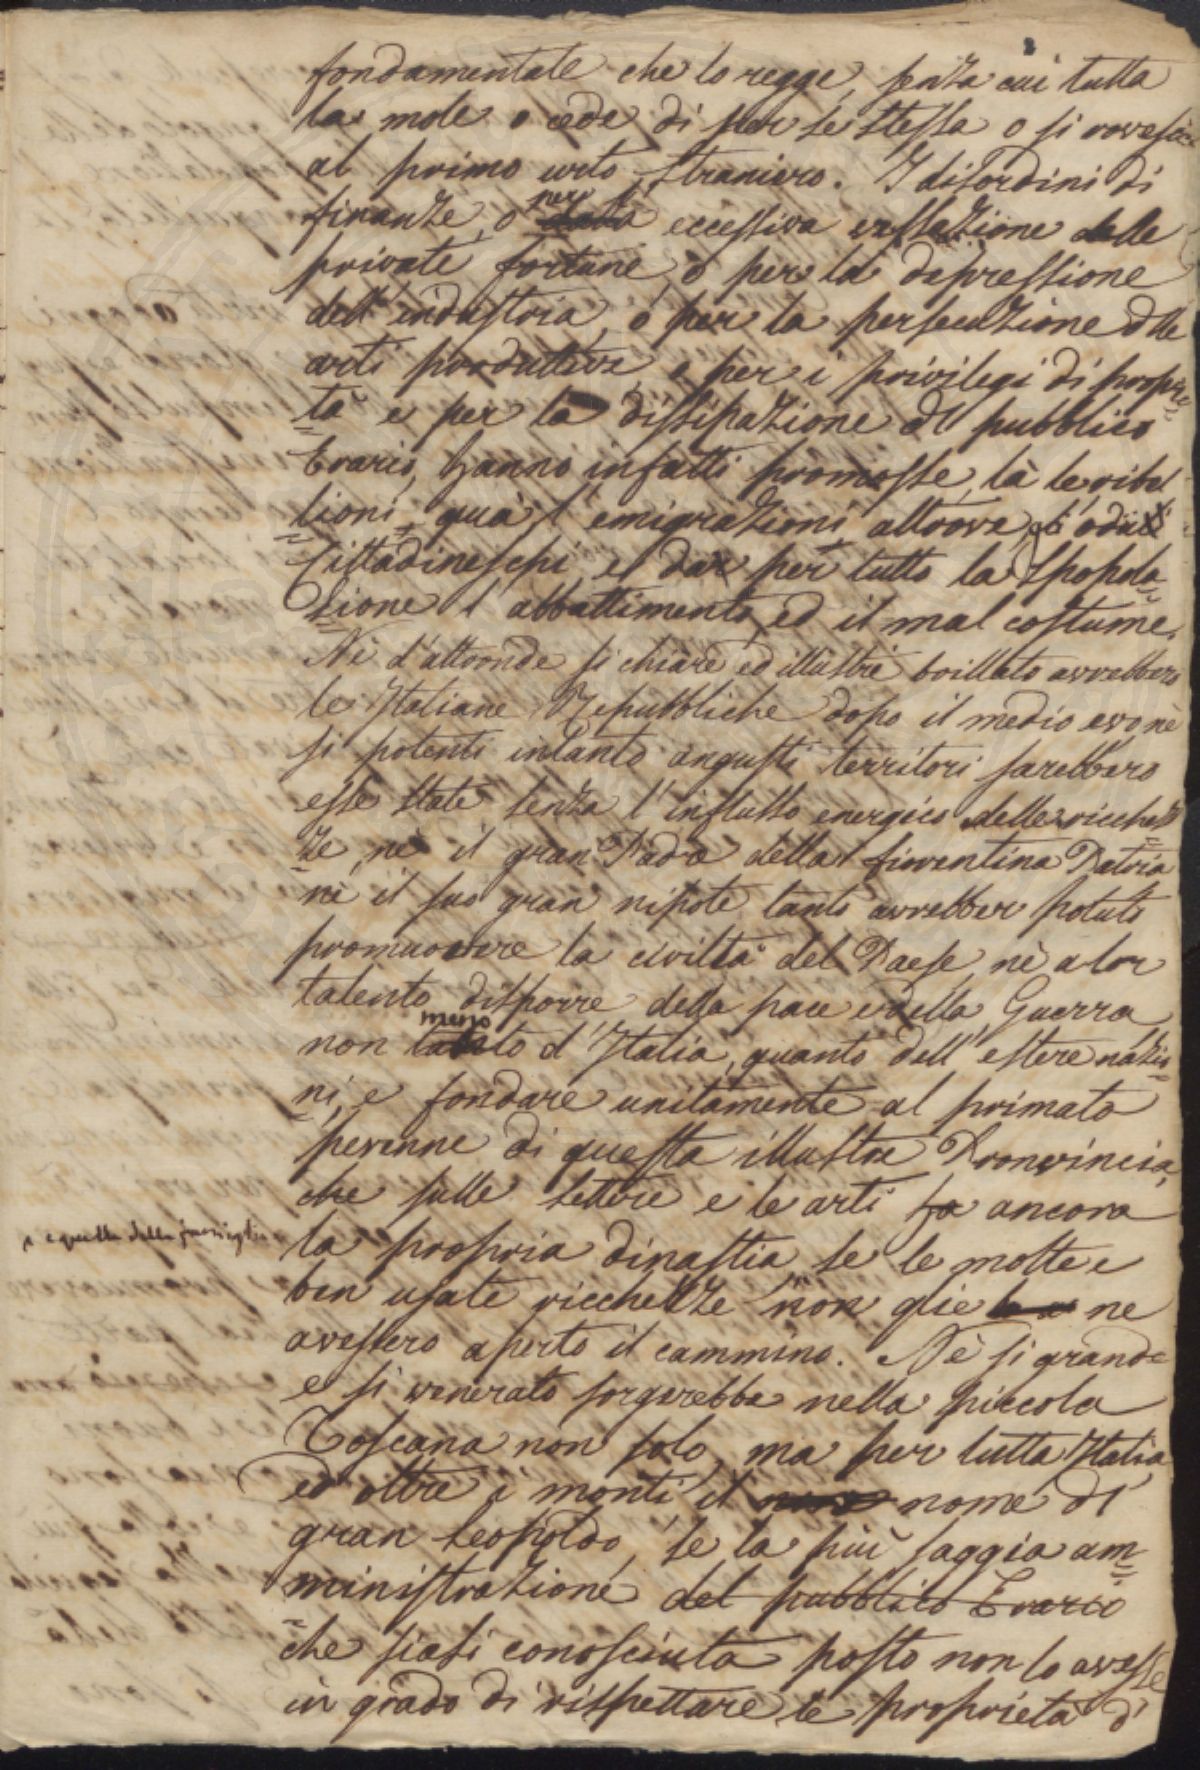 fondamentale che lo regge, senza cui tutta
la mole o cede di per se stessa o si rovescia
al primo urto straniero. I disordini di
finanze, o per eccessiva vessazione delle
private fortune o per la depressione
dell'industria, o per la persecuzione delle
arti produttive, e per i privilegi di proprie
tà e per la dissipazione del pubblico
Erario, hanno infatti promosse, là le ribel
lioni, quà l'emigrazioni, altrove gl'odii
Cittadineschi, e per tutto la spopola
zione l'abbattimento, ed il mal costume.
Nè d'altronde si chiare ed illustri brillato avrebbero
le Italiane Repubbliche dopo il medio evo nè
si potenti intanto angusti territori sarebbero
esse state senza l'influsso energico delle ricchez
ze, nè il gran Padre della fiorentina Patria
nè il suo gran nipote tanto avrebber potuto
promuovere la civiltà del Paese, nè a lor
talento disporre della pace e della Guerra
non meno d'Italia, quanto dell'estere nazio
ni, e fondare unitamente al primato
perenne di questa illustre Pronvincia,
che sulle lettere e le arti ha ancora
e quella della famiglia
la propria dinastia se le molte e
ben usate ricchezze non glie ne
avessero aperto il cammino. Nè si grande
e si venerato sorgerebbe nella piccola
Toscana non solo, ma per tutta Italia
ed oltre i monti, il nome di
gran Leopoldo, se la più saggia am
ministrazione del pubblico Erario
che siasi conosciuta posto non lo avesse
in grado di rispettare le proprietà d